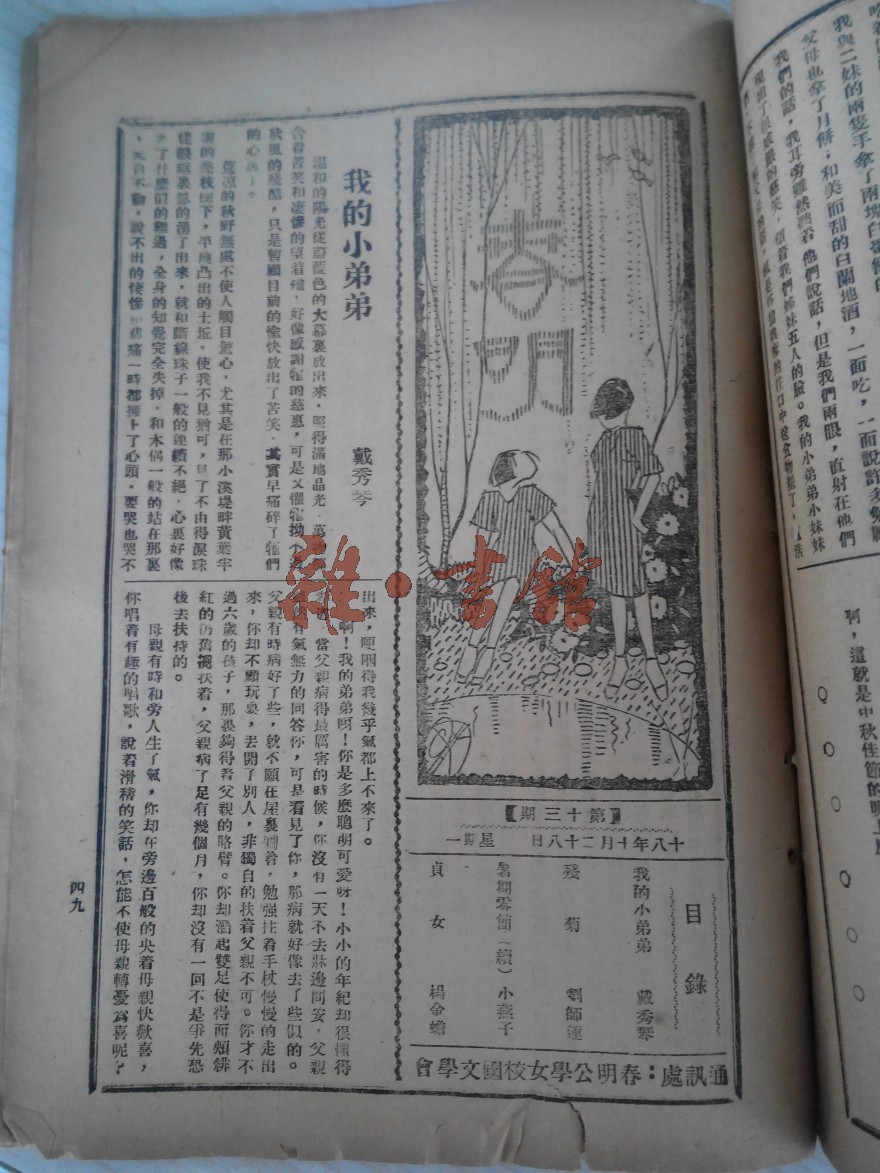 春明
【第十三期】
十八年十月二十八日 星期一
目錄
我的小弟弟 戴秀琴
殘菊 劉師蓮
暑期零簡(續) 小燕子
貞女 楊金蟾
通訊處:春明公學女校國文學會
我的小弟弟
戴秀琴
溫和的陽光從蔚藍色的大幕裏放出來,照得滿地晶光,萬
含着苦笑和凄慘的望着牠,好像感謝牠的慈惠,可是又懼牠拗不過
秋風的殘酷,只是暫顧目前的愉快放出了苦笑,其實早痛碎了牠們
的心
荒涼的秋野無處不使人觸目驚心,尤其是在那小溪堤畔黃葉半
凋的樹下,平地凸出的土坵,使我不見猶可,見了不由得淚珠
從眼眶裏湧了出來,就和斷線珠子一般的連續不絕,心裏好像
了什麼們的經過,全身的知覺完全失掉,和木偶一般的站在那裏
說不出的悽慘和悲痛一時都擁上了心頭,要哭也哭不
出來,哽咽得我幾乎氣都上不來了。
啊!我的弟弟呀!你是多麼聰明可愛呀!小小的年紀却很懂得
當父親病得最厲害的時候,你沒有一天不去牀邊問安,父親
有氣無力的回答你,可是看見了你,那病就好像去了些似的。
父親有時病好了些,就不願在屋裏躺着,勉強拄着手杖慢慢的走出
來,你却不顧玩耍,丟開了別人,非獨自的扶着父親不可。你才不
過六歲的孩子,那裏夠得着父親的胳臂。你却踮起雙足使得兩頰緋
紅的仍舊攙扶着,父親病了足有幾個月,你却沒有一回不是爭先恐
後去扶持的。
母親有時和旁人生了氣,你却在旁邊百般的央着母親快歡喜,
你唱着有趣的唱歌,說着滑稽的笑話,怎能不使母親轉憂爲喜呢?
四九
我與二妹的兩隻手拿了兩塊白
父母也拿了月餅,和美而甜的白蘭地酒,一面吃,一面說許多
我們的話,我耳旁雖然聽着他們說話,但是我們兩眼,直射在他們
望着我們姊妹五人的臉。我的小弟弟小妹妹
啊,這就是中秋佳節的晚上
雜·書館